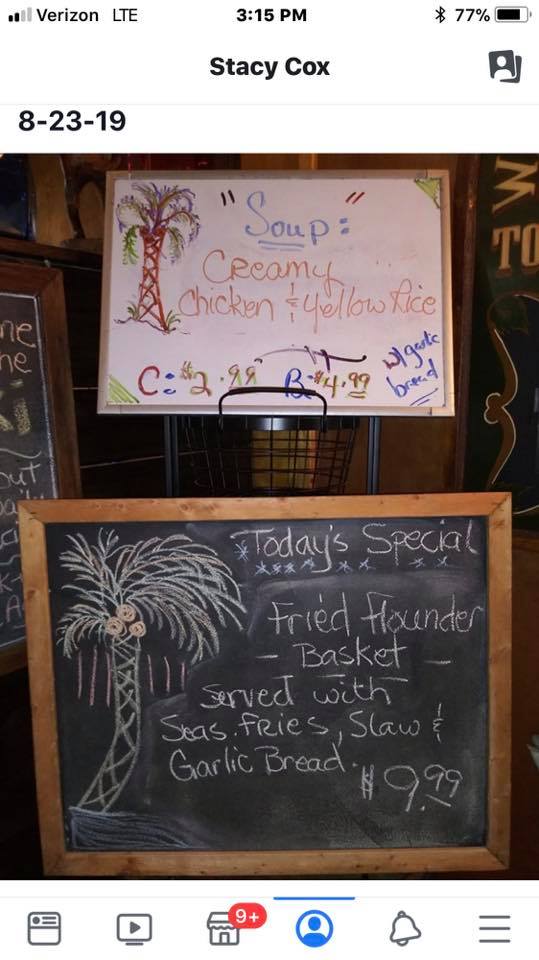 Verizon LTE 3:15 PM 77%
Stacy Cox
8-23-19
"Soup:"
Creamy
Chicken & Yellow Rice
C: $2.99 B: $4.99 w/ garlic bread
W
TO
ne
he
out
*Today's Special
Fried Flounder
- Basket -
Served with
Seas. Fries, Slaw &
Garlic Bread.
$9.99
9+